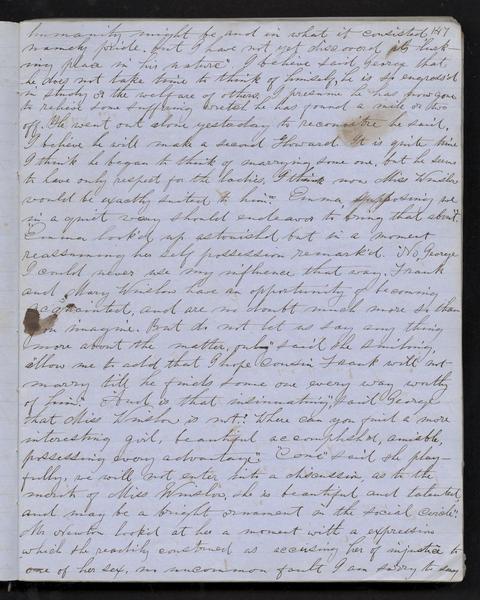 humanity might be and in what it consisted 147
namely pride, but I have not yet discovered its lurk-
ing place in his nature". I believe said George that
he does not take time to think of himself, he is so engross'd
in study or the welfare of others. I presume he has now gone
to relieve some suffering wretch he has found a mile or two
off. He went out alone yesterday to reconnoitre he said,
I believe he will make a second Howard. It is quite time
I think he began to think of marrying some one, but he seems
to have only respect for the ladies. I think now Miss Winslow
would be exactly suited to him." Emma, supposing we
in a quiet way should endeavor to bring that about".
Emma look'd up astonished but in a moment
reassuming her self possession remark'd. "No, George
I could never use my influence that way. Frank
and Mary Winslow have an opportunity of becoming
acquainted, and are no doubt much more so than
you imagine. But do not let us say any thing
more about the matter, only" said she smiling,
"allow me to add that I hope Cousin Frank will not
marry till he finds some one every way worthy
of him". "And is that insinuating", said George
that Miss Winslow is not? Where can you find a more
interesting girl, beautiful accomplished, amiable,
possessing every advantage". "Come" said she play-
fully, we will not enter into a discussion, as to the
merits of Miss Winslow, she is beautiful and talented
and may be a bright ornament in the social circle".
Mr Newton look'd at her a moment with a expression
which she readily construed as accusing her of injustice to
one of her sex, no uncommon fault I am sorry to say